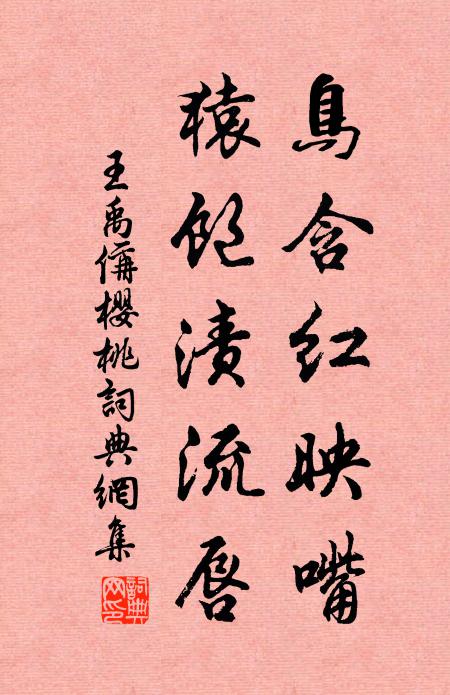 鳥含紅映嘴
猿飽漬流唇
王禹偁櫻桃詞典網集
詞典网印